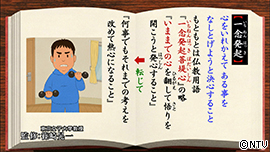 一念発起
心をいれかえて ある事を
なしとげようと決心すること
もともとは仏教用語
『一念発起菩提心』の略
『いままでの心を翻して悟りを
開こうと発心すること』
転じて
『何事でもそれまでの考えを
改めて熱心になること』
東京女子大学教授
監修:篠崎晃一
©NTV